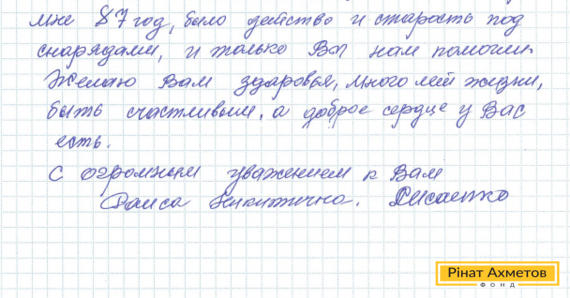 мне 87 год, было действо и старость под
снарядами, и только Вы нам помогли.
Желаю Вам здоровья, много лет жизни,
быть счастливыми, а доброе сердце у Вас
есть.
С огромным уважением к Вам
Раиса Никитична.
Рінат Ахметов
ФОНД